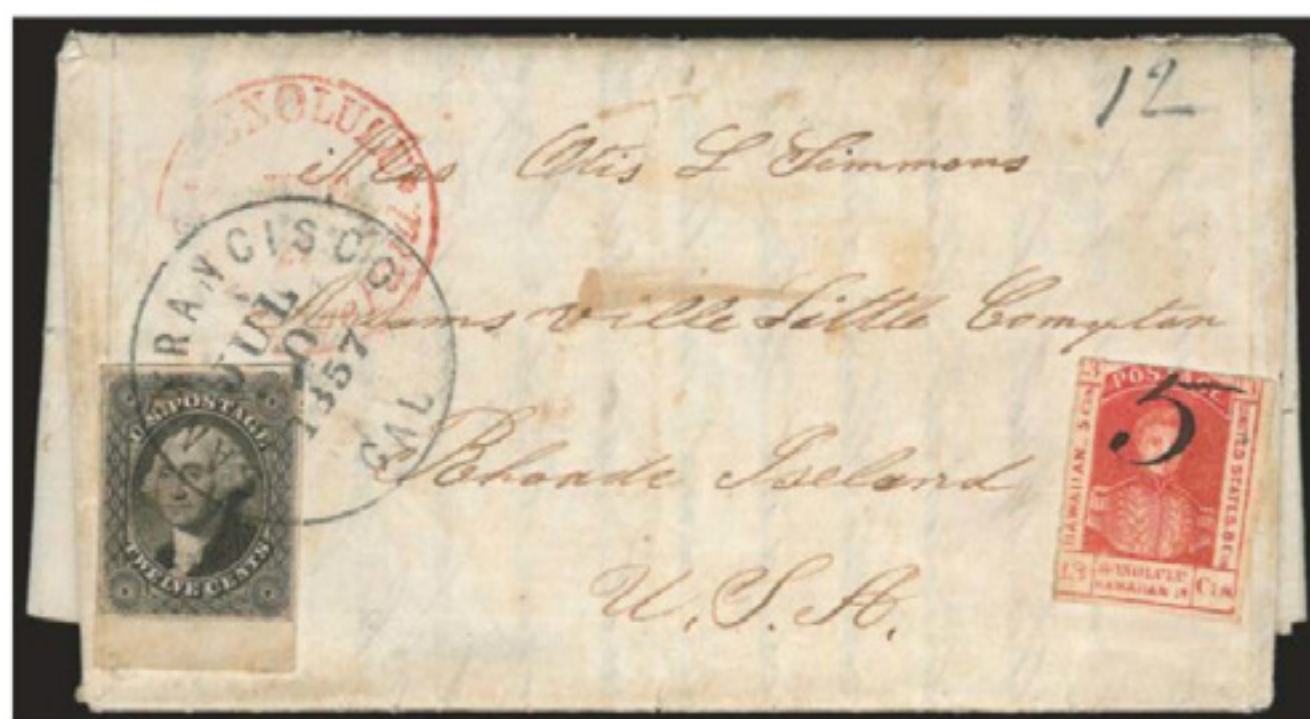 12
HONOLULU
Mrs Otis L Simmons
FRANCISCO
CAL
JUL
1857
Adams ville Little Compton
Rhoade Iseland
U.S.A.
U.S. POSTAGE
TWELVE CENTS
5
POSTAGE
HAWAIIAN. 5 Cts
UNITED STATES
13
HONOLULU
HAWAIIAN Is
Cts